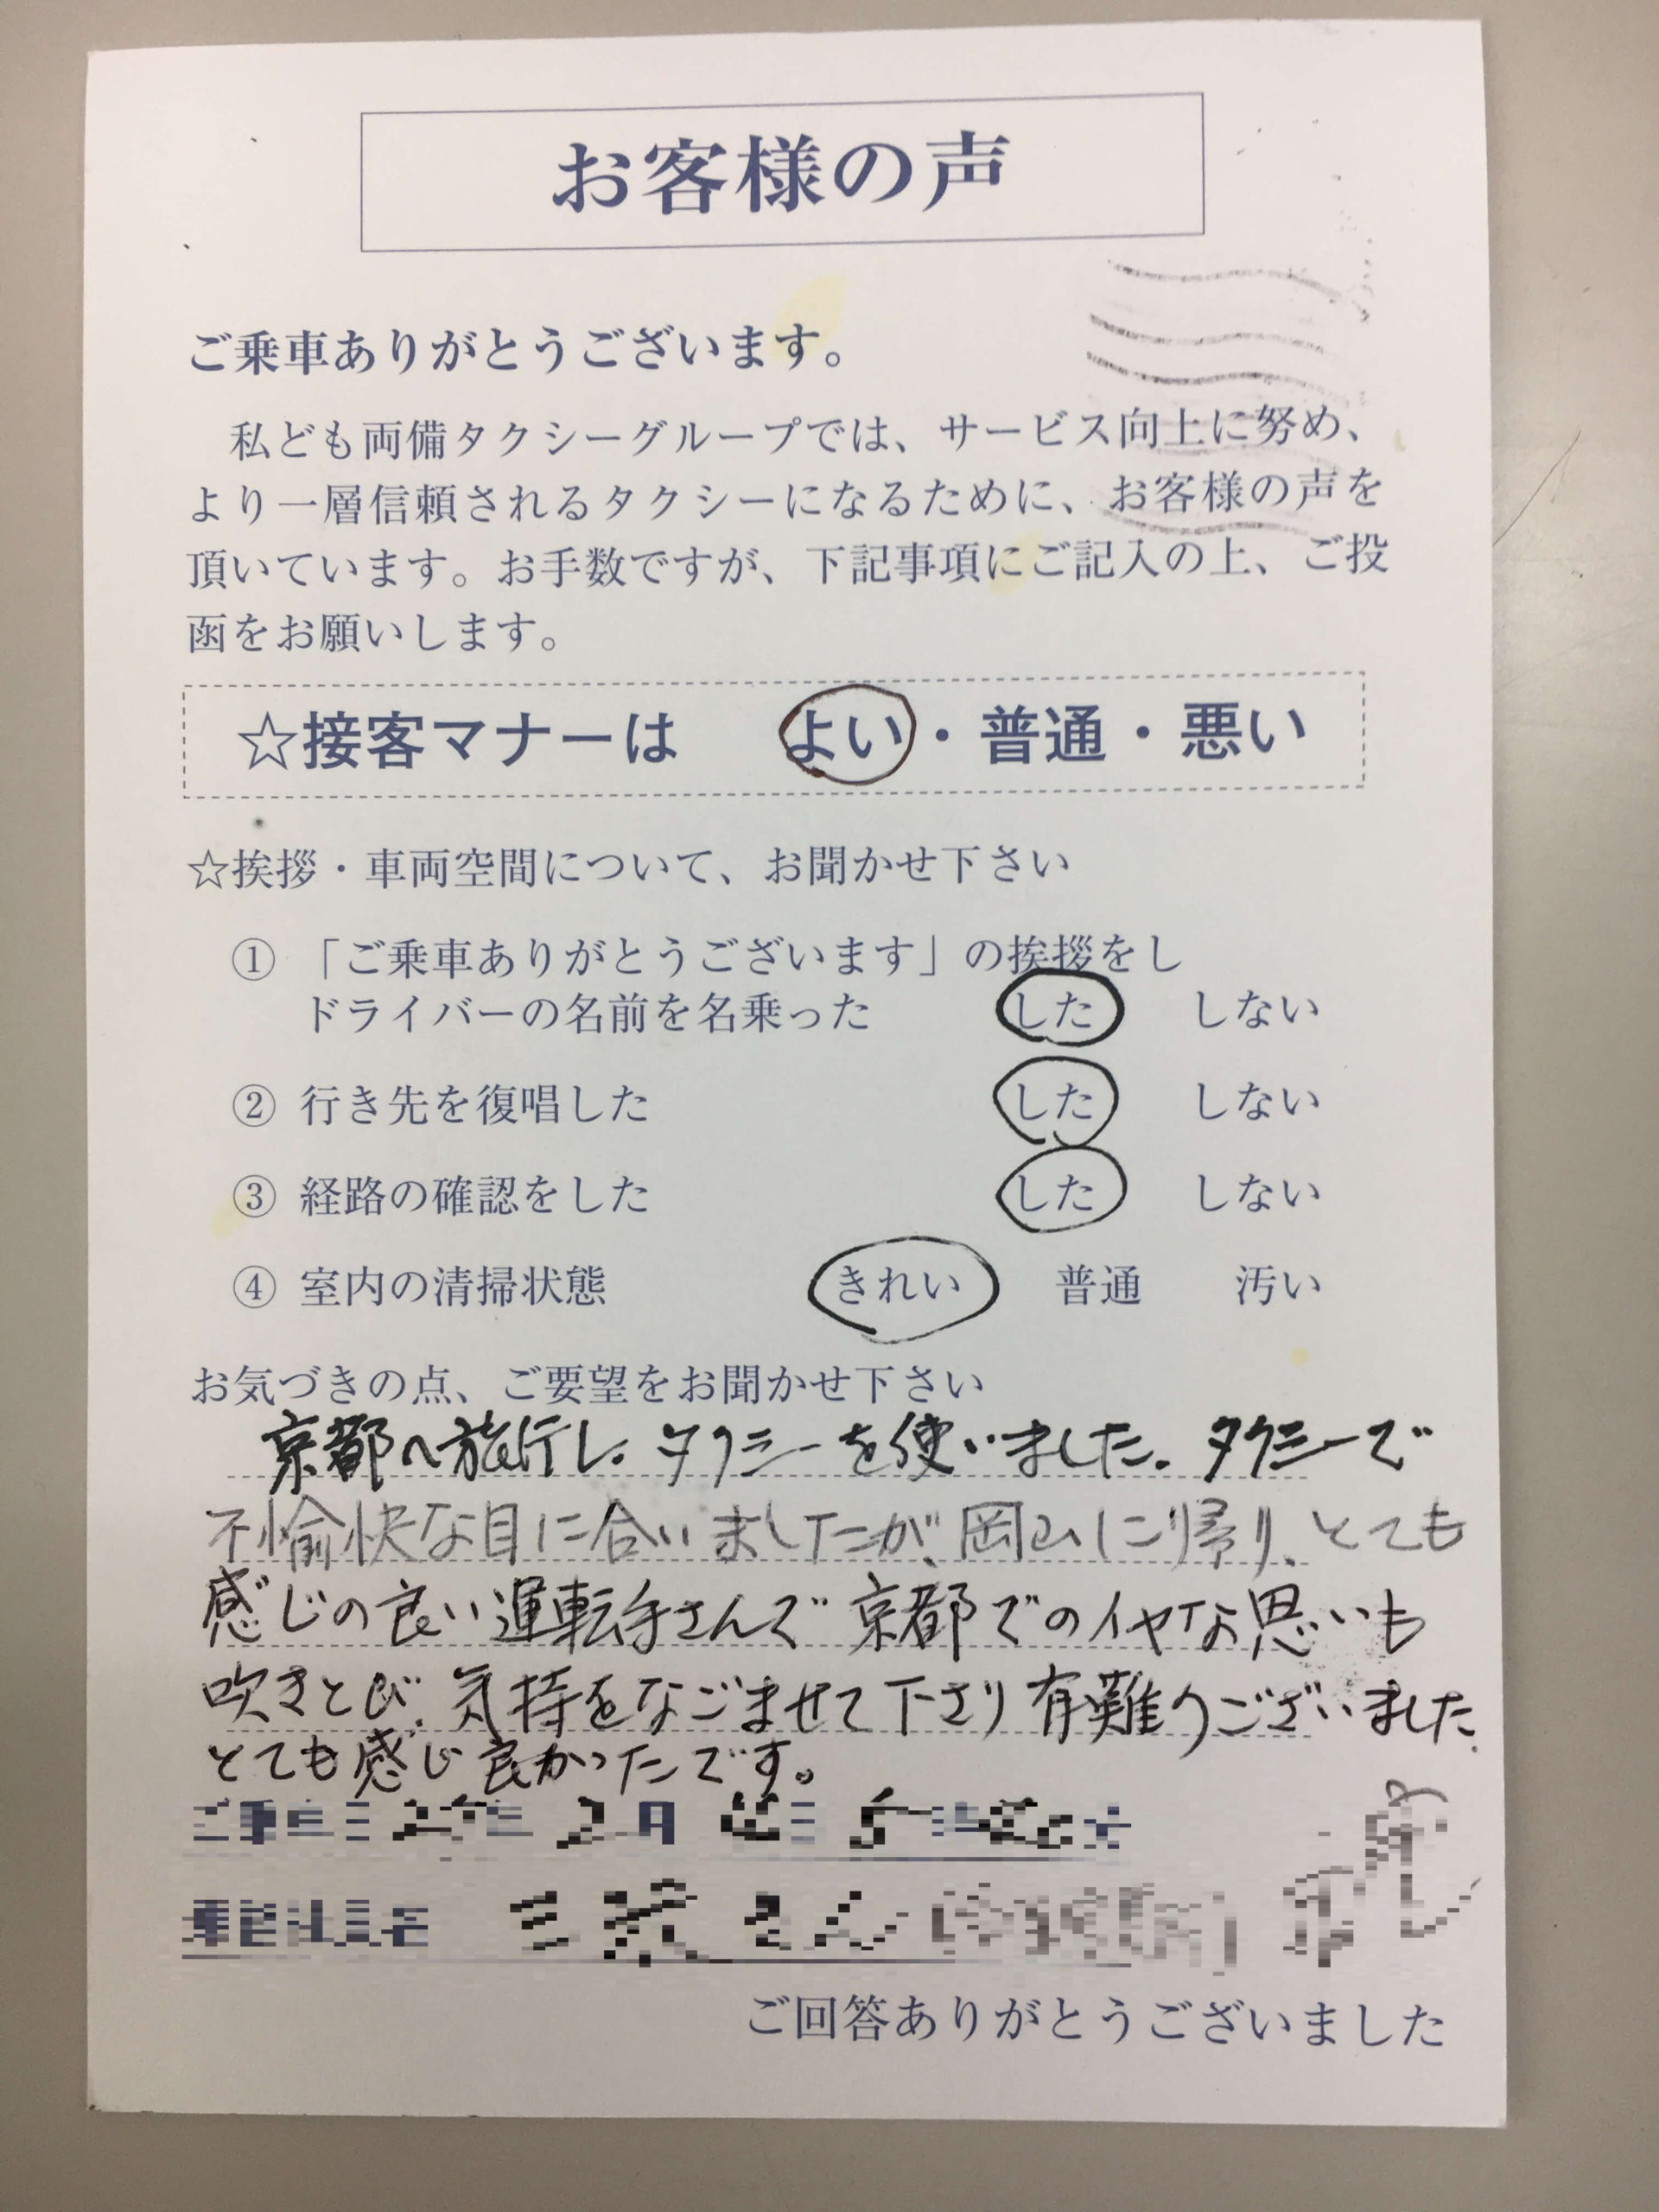 お客様の声
ご乗車ありがとうございます。
私ども両備タクシーグループでは、サービス向上に努め、
より一層信頼されるタクシーになるために、お客様の声を
頂いています。お手数ですが、下記事項にご記入の上、ご投
函をお願いします。
☆接客マナーは よい・普通・悪い
☆挨拶・車両空間について、お聞かせ下さい
① 「ご乗車ありがとうございます」の挨拶をし
ドライバーの名前を名乗った した しない
② 行き先を復唱した した しない
③ 経路の確認をした した しない
④ 室内の清掃状態 きれい 普通 汚い
お気づきの点、ご要望をお聞かせ下さい
京都へ旅行し、タクシーを使いました。タクシーで
不愉快な目に合いましたが、岡山に帰り、とても
感じの良い運転手さんで京都でのイヤな思いも
吹きとび、気持をなごませて下さり有難うございました。
とても感じ良かったです。
ご回答ありがとうございました